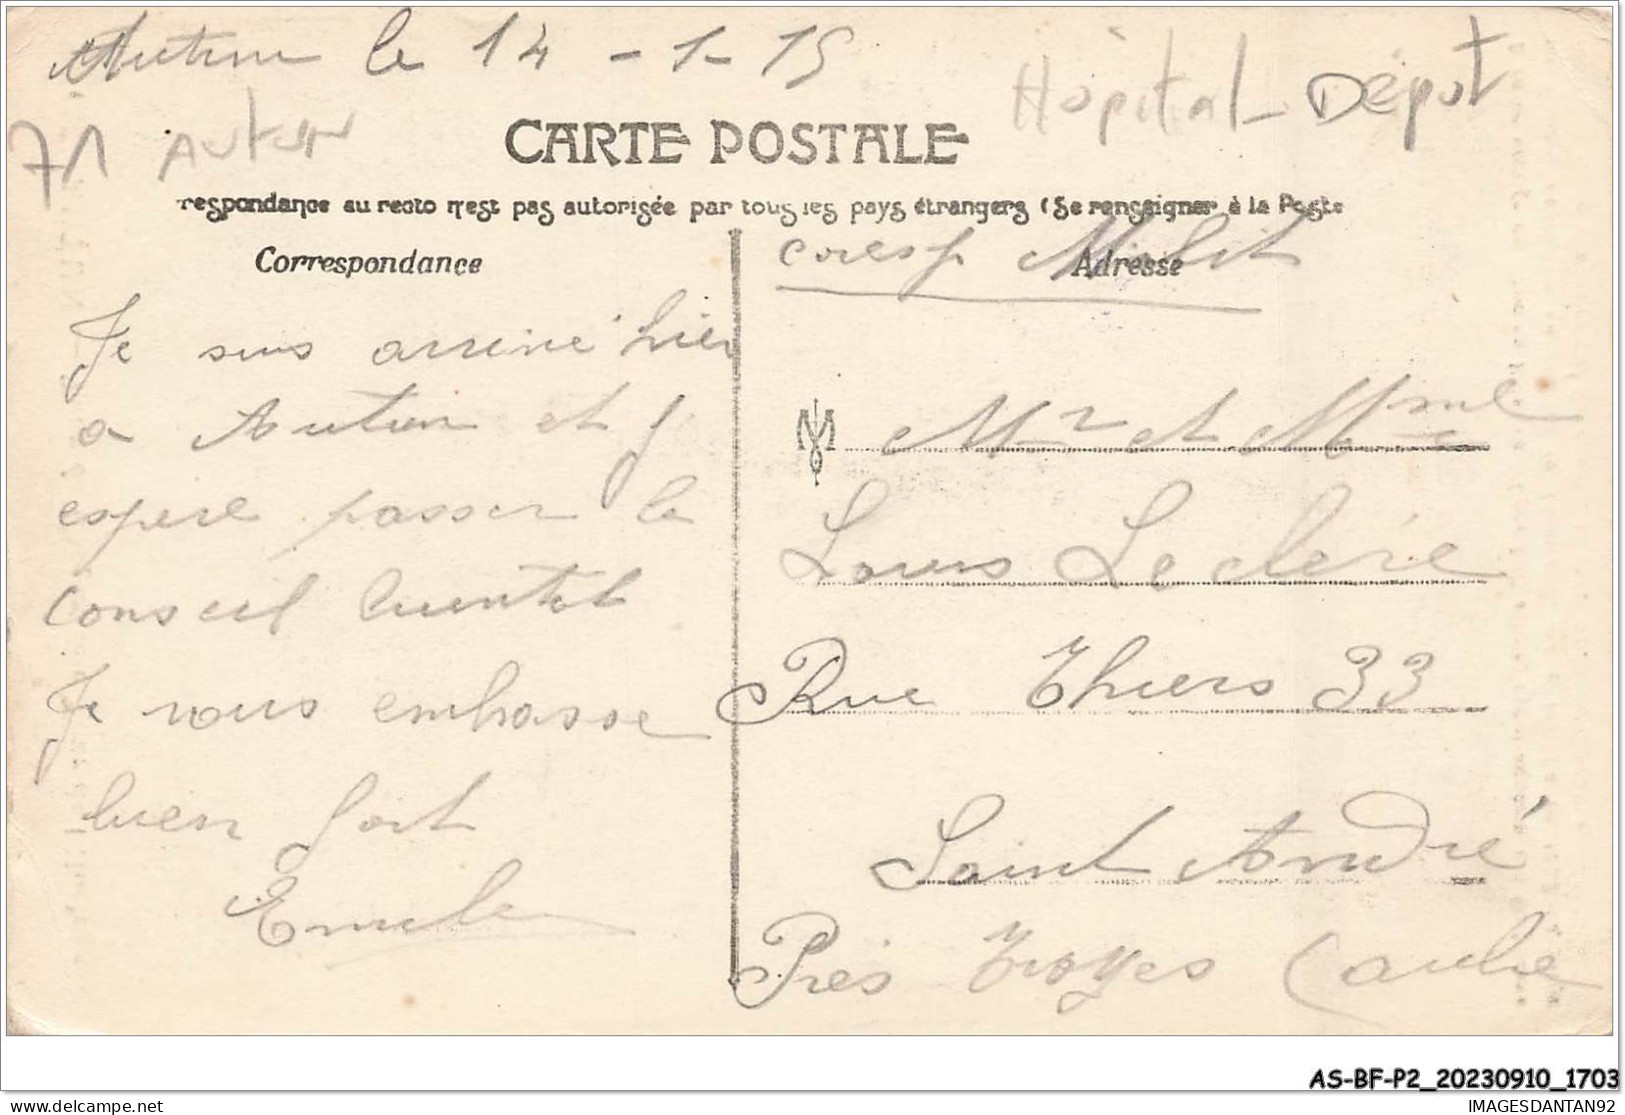 Autun le 14 - 1 - 15
Hôpital - Dépot
71 Autun
CARTE POSTALE
respondance au recto n'est pas autorisée par tous les pays étrangers (Se renseigner à la Poste
Correspondance
Adresse
coresp Milit
Je suis arrivé hier
a Autun et j
espere passer le
conseil bientot
Je vous embrasse
bien fort
Emile
Mr et Mme
Louis Leclère
Rue Thiers 33
Saint André
Près Troyes (aube
AS-BF-P2_20230910_1703
delcampe.net
IMAGESDANTAN92